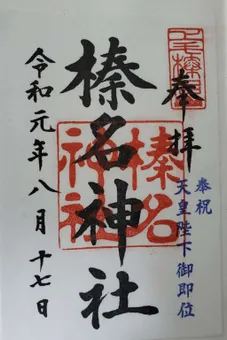 奉拝
奉祝
天皇陛下御即位
榛名神社
榛名神社
令和元年八月十七日